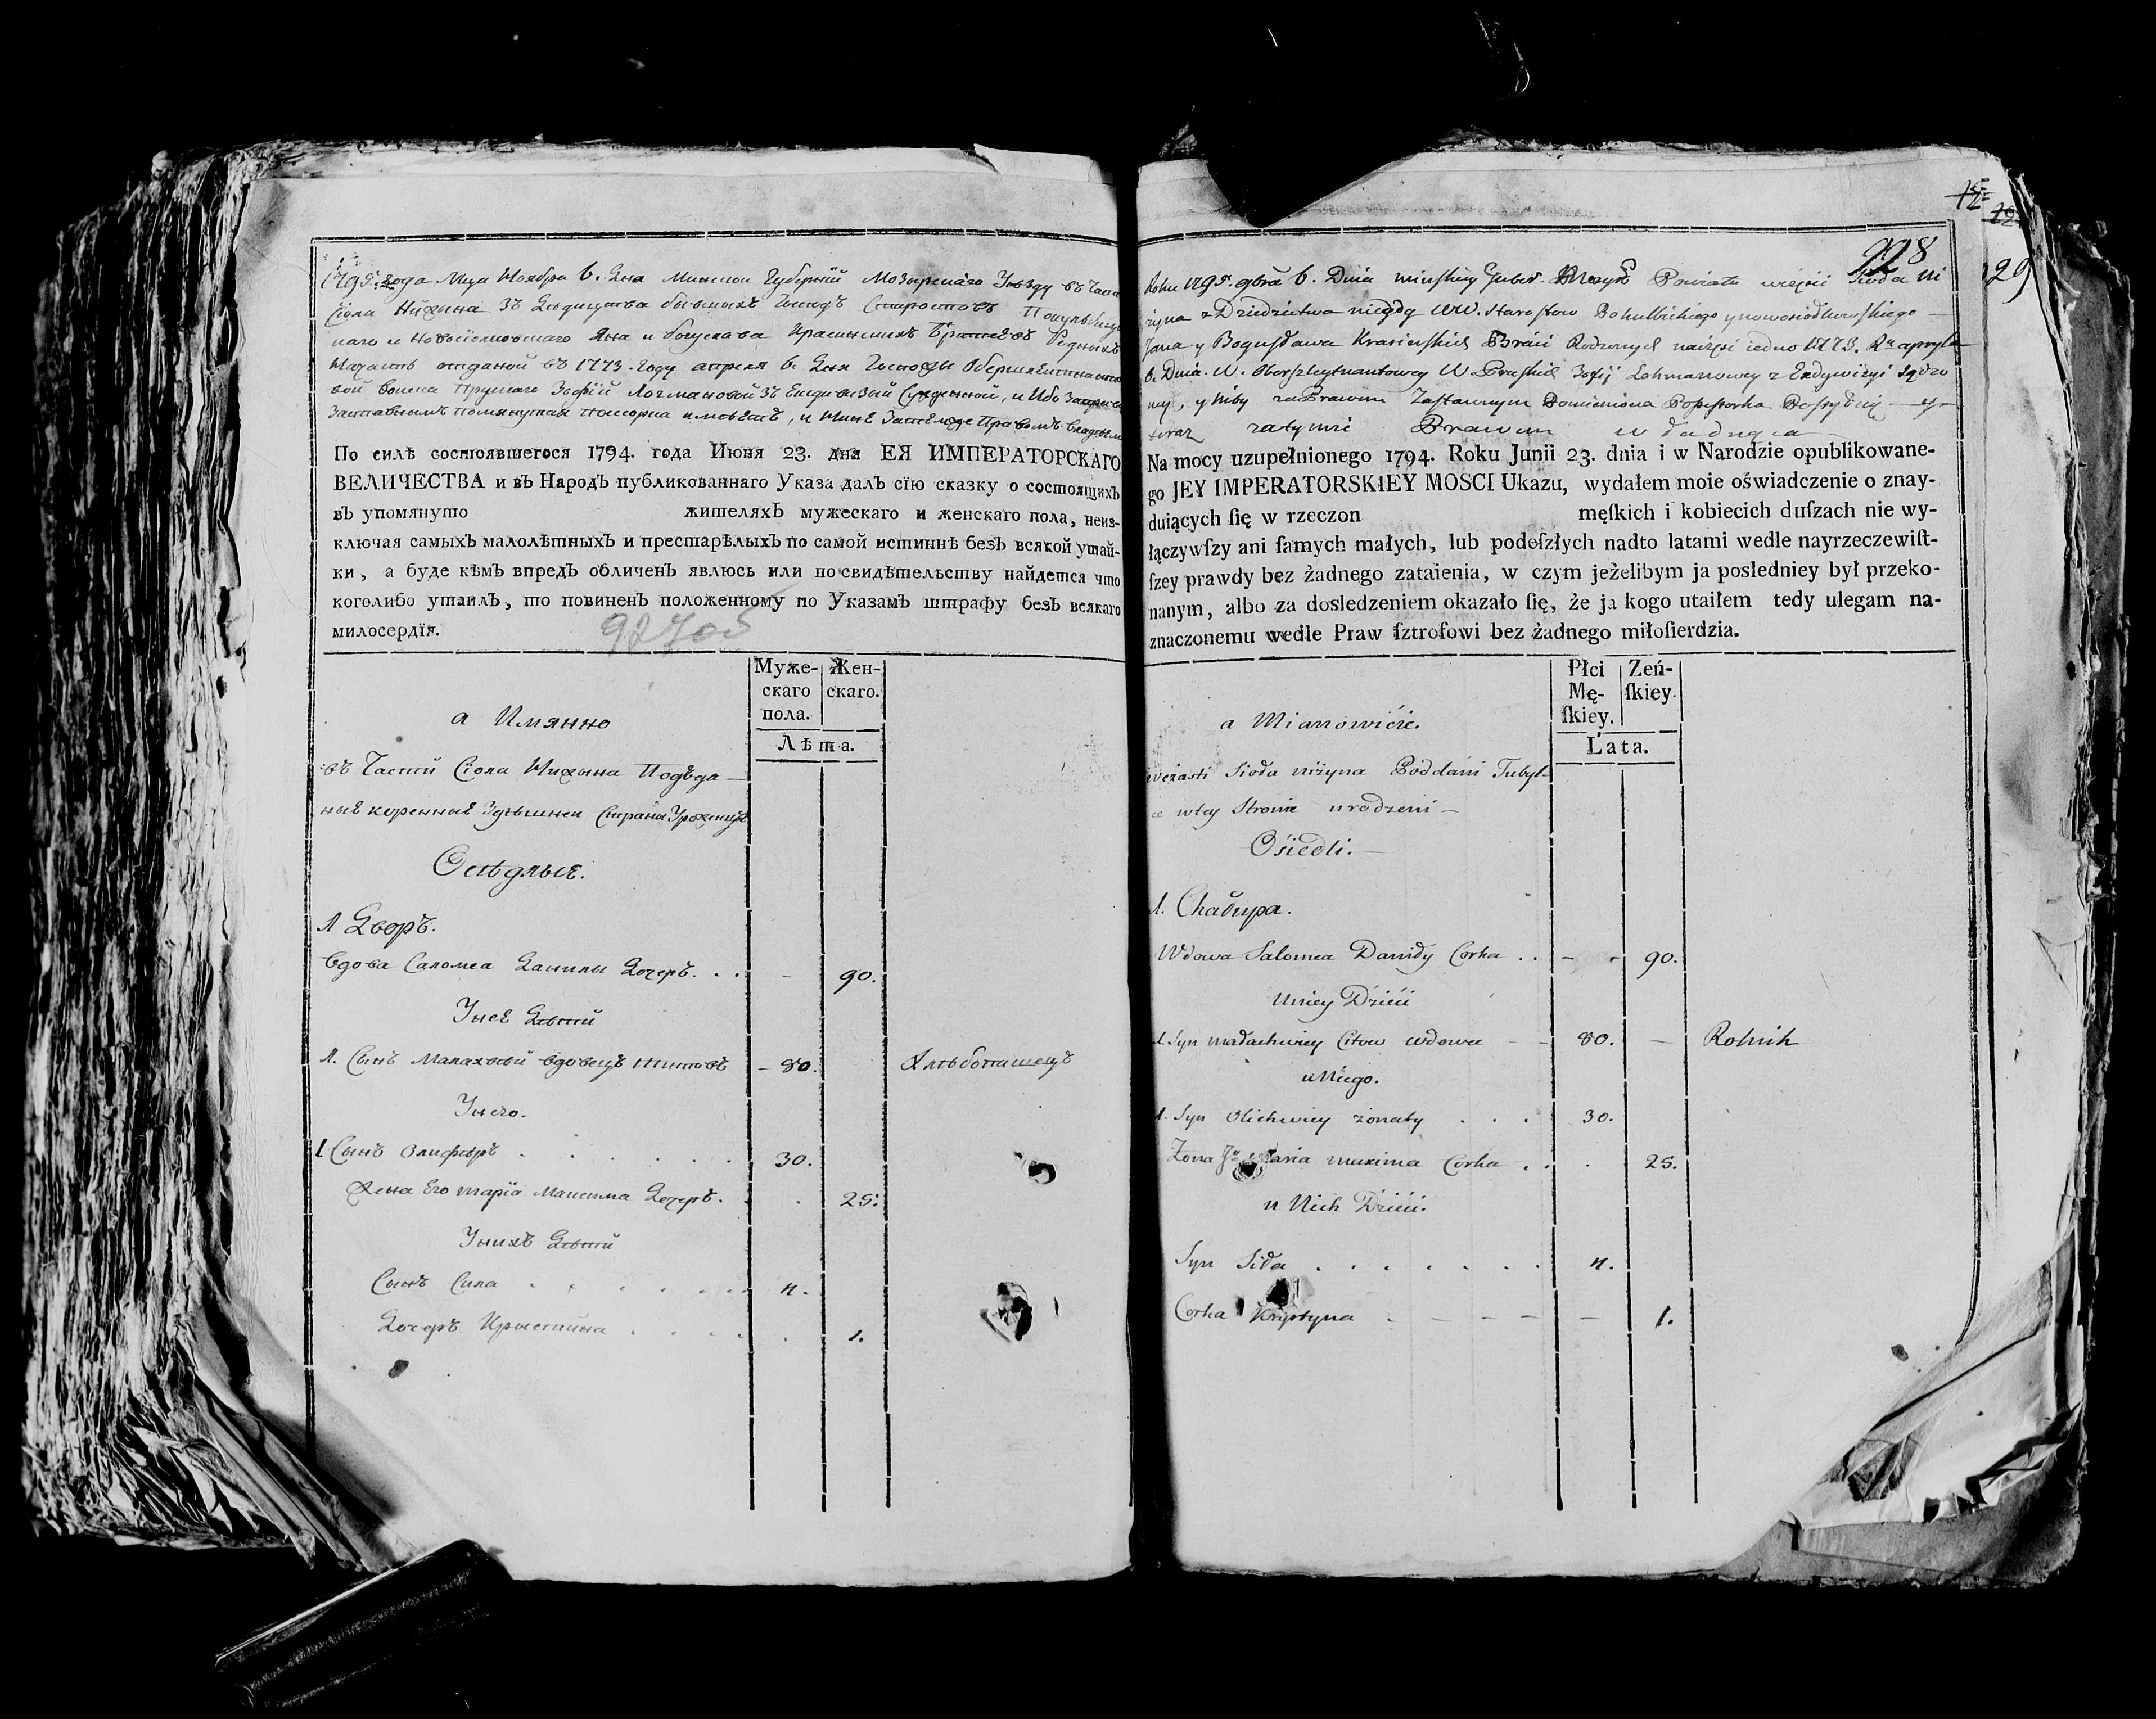 1795: года Мца Ноября 6. Дня Минской Губернïй Мозырскаго Уезду въ Части
Сïола Нижина Зъ Дѣдицтва бывшихъ Господъ Старостовъ
наго и Яна и богуслава Красинскихъ Братей Родныхъ
отданой въ 1773. Году апреля 6. Дня Госпожи
вой войска Прускаго Зофïй Лохмановой Зъ , и Ибо
Заставнымъ помянутая Посесорка имѣетъ, и Ныне Затемже Правомъ
По силѣ состоявшегося 1794. года Июня 23. дня ЕЯ ИМПЕРАТОРСКАГО
ВЕЛИЧЕСТВА и въ Народъ публикованнаго Указа далъ сїю сказку о состоящихъ
въ упомянуто жителяхъ мужескаго и женскаго пола, неиз-
ключая самыхъ малолѣтныхъ и престарѣлыхъ по самой истиннѣ безъ всякой утай-
ки, а буде кѣмъ впредъ обличенъ явлюсь или по свидѣтельству найдется что
коголибо утаилъ, то повиненъ положенному по Указамъ штрафу безъ всякаго
милосердїя.
927об
Муже-
скаго
пола.
Жен-
скаго.
Лѣта.
а Имянно
въ Части Сïола Нижина Подъда-
ные коренные Здешнеи Страны Уроженцы
Оседлые.
1 Дворъ.
Вдова Саломеа Данилы Дочеръ. . . - 90.
Унее Дѣтй
1. Сынъ Малахвѣй вдовецъ Титовъ - 80. Хлѣбопашецъ
Унего.
1 Сынъ Олифѣръ . . . . . . 30.
Жена Его Марïа Максима Дочеръ. . 25:
Унихъ Дѣтй
Сынъ Сила . . . . . . 4.
Дочеръ Крыстина . . . . . 1.
12
928
29
Roku 1795. 9bra 6. Dnia Minskiey Guber. Mozyr Powiatu części Sioła Ni
żyna z Dziedzictwa niegdy WW. Starostow Pohulbickiego y nowosiołkowskiego
Jana y Bogusława Krasinskich Braci Rodzonych 1773. Ru apryla
6. Dnia. W. Oberszleytnantowey W Pruskich Zofij Lohmanowey z
ney, y Niby za Prawem Zastawnym Pomieniona
teraz zatymże Prawem władnąca
Na mocy uzupełnionego 1794. Roku Junii 23. dnia i w Narodzie opublikowane-
go JEY IMPERATORSKIEY MOSCI Ukazu, wydałem moie oświadczenie o znay-
duiących ſię w rzeczon męſkich i kobiecich duſzach nie wy-
łączywſzy ani ſamych małych, lub podeſzłych nadto latami wedle nayrzeczewiſt-
ſzey prawdy bez żadnego zataienia, w czym jeżelibym ja posledniey był przeko-
nanym, albo za dosledzeniem okazało ſię, że ja kogo utaiłem tedy ulegam na-
znaczonemu wedle Praw ſztrofowi bez żadnego miłoſierdzia.
Płci
Mę-
ſkiey.
Zeń-
ſkiey.
Lata.
a Mianowićie.
w czasti Sioła niżyna Poddani Tubyl-
ce wtey Stronie urodzeni -
Ośiedli. -
1. Chałupa.
Wdowa Salomea Daniły Corka . . - - 90.
Uniey Dźieći
1. Syn małachwiey Citow wdowec - - 80. - Rolnik
u Niego.
1. Syn Olichwiey żonaty . . . 30.
Zona Jo Maria maxima Corka . . . 25.
u Nich Dźieći.
Syn Siła . . . . . . . 4.
Corka Krystyna . - - - - 1.